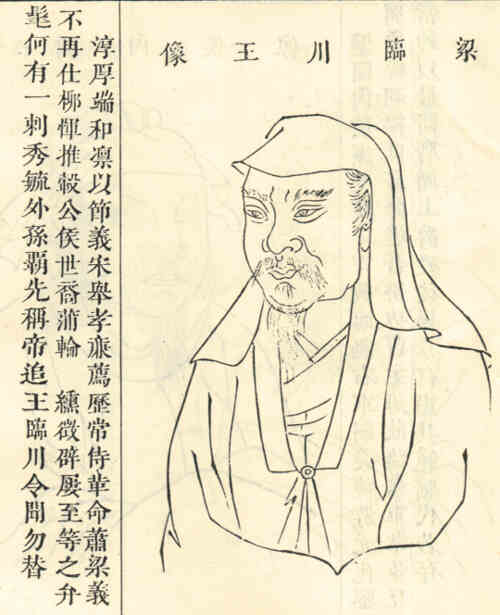 梁臨川王像
淳厚端和凛以節義宋舉孝亷薦歷常侍革命蕭梁義
不再仕柳惲推轂公侯世裔蒲輪 纁徵辟屢至等之弁
髦何有一刺秀毓外孫霸先稱帝追王臨川令聞勿替